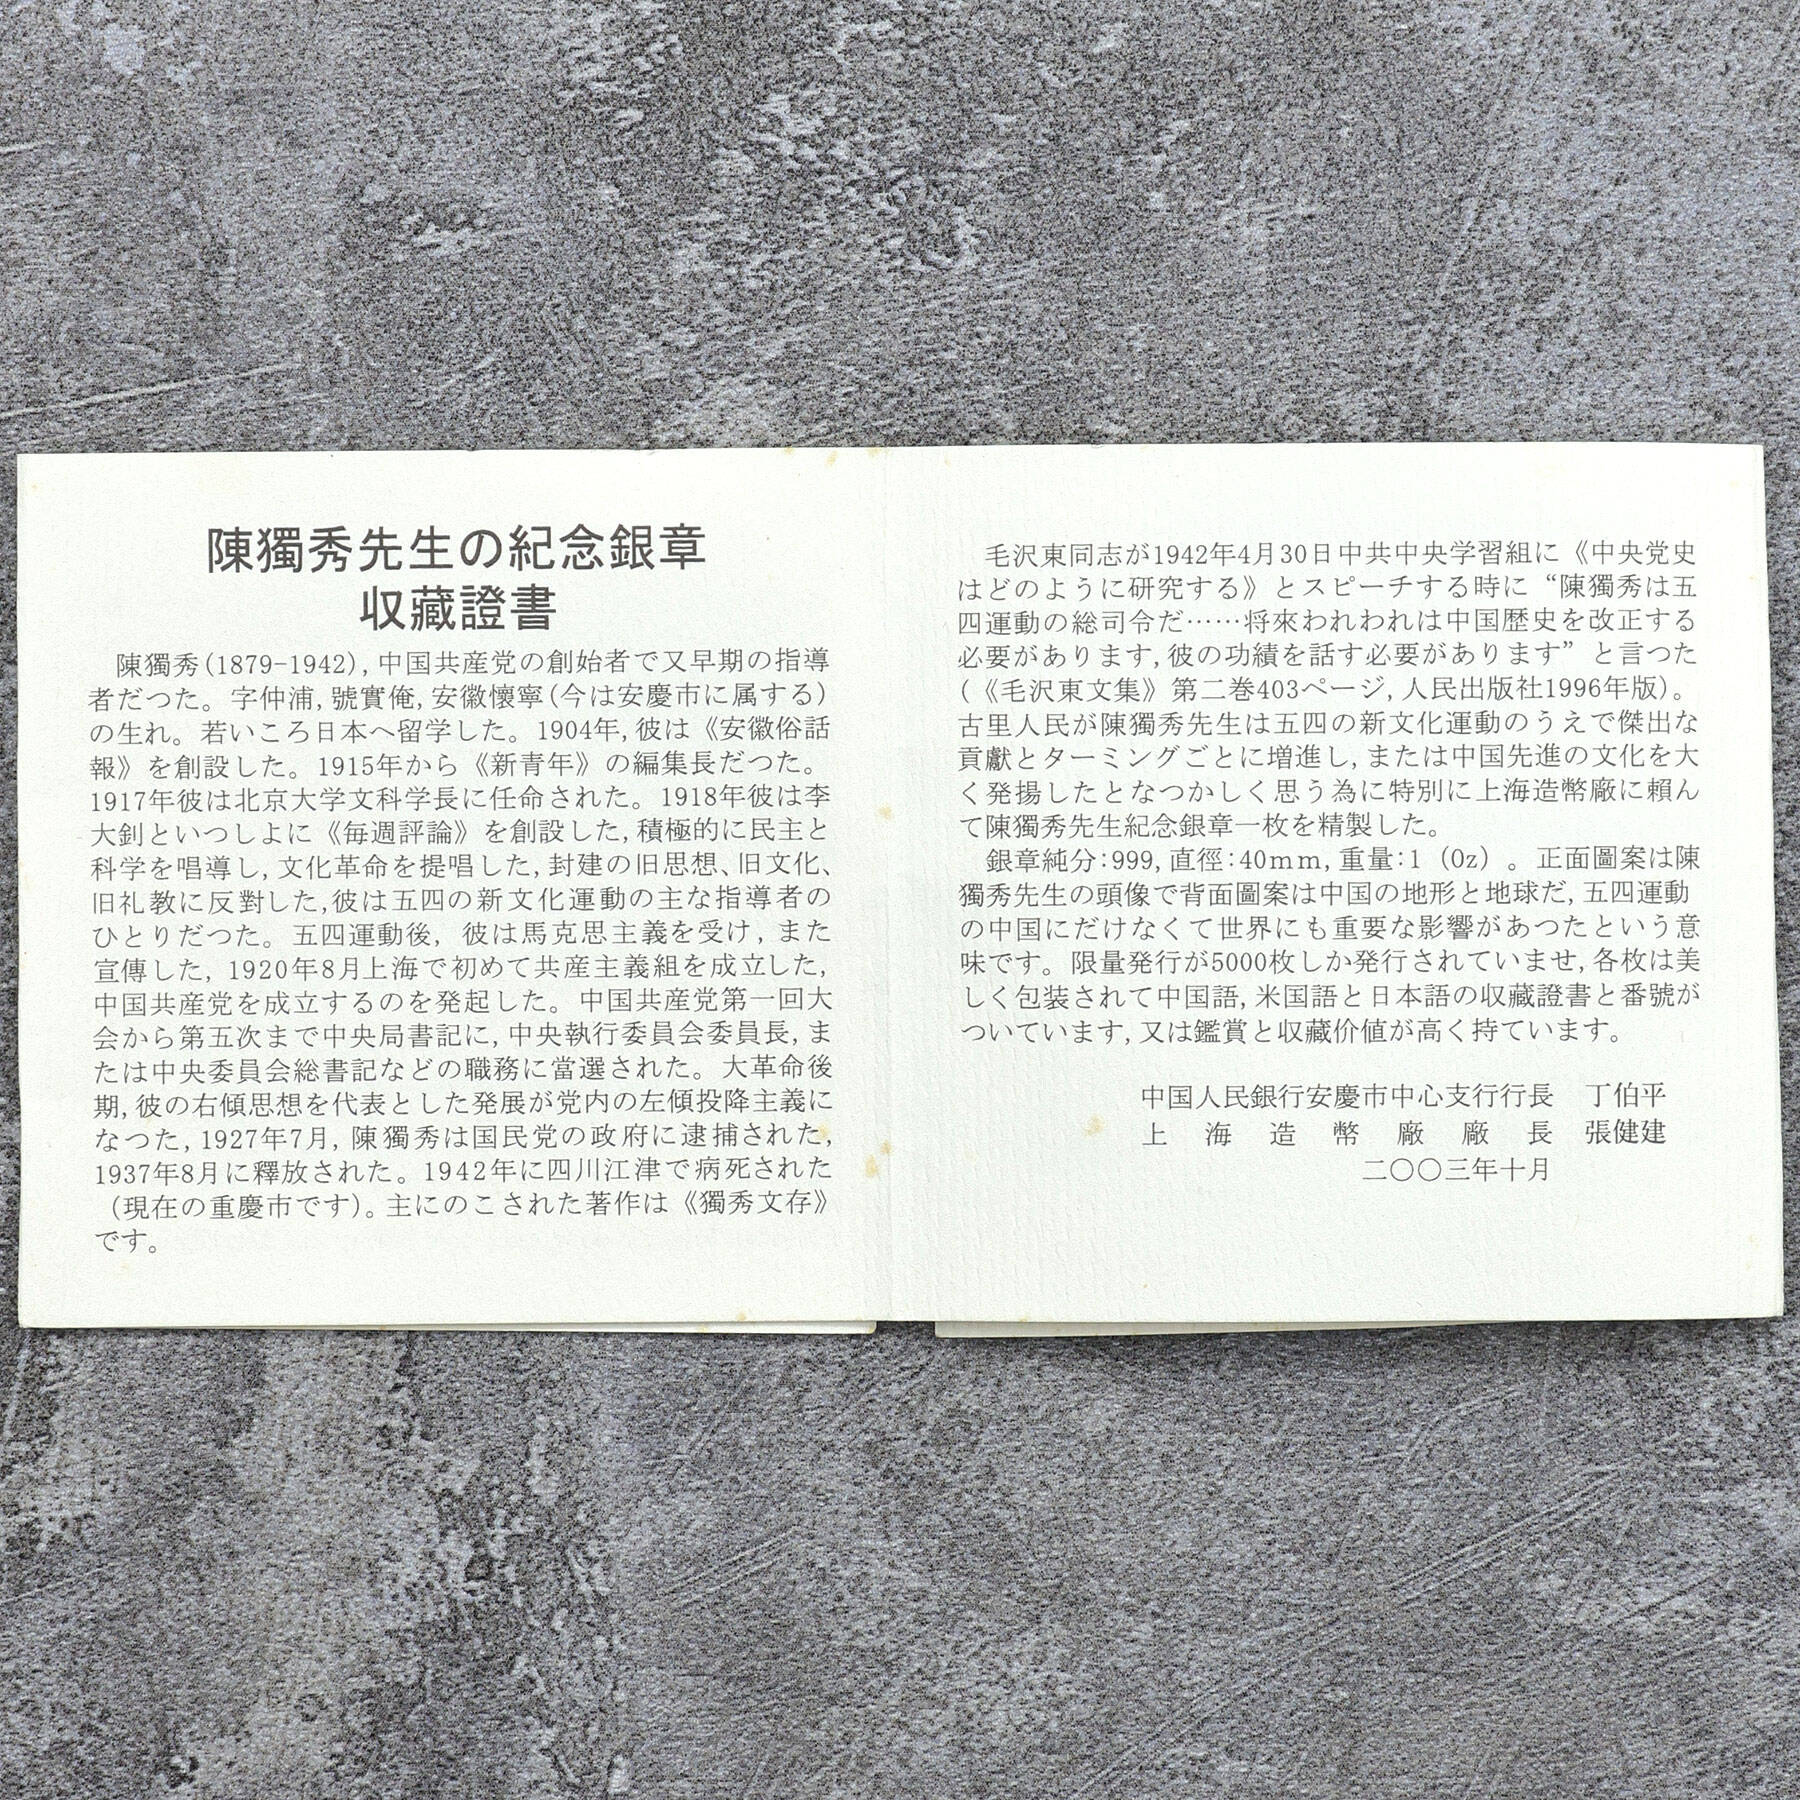 陳獨秀先生の紀念銀章
収藏證書
陳獨秀(1879-1942),中国共産党の創始者で又早期の指導
者だつた。字仲浦,號實俺,安徽懷寧(今は安慶市に属する)
の生れ。若いころ日本へ留学した。1904年,彼は《安徽俗話
報》を創設した。1915年から《新青年》の編集長だつた。
1917年彼は北京大学文科学長に任命された。1918年彼は李
大釗といつしよに《毎週評論》を創設した,積極的に民主と
科学を唱導し,文化革命を提唱した,封建の旧思想、旧文化、
旧礼教に反對した,彼は五四の新文化運動の主な指導者の
ひとりだつた。五四運動後,彼は馬克思主義を受け,また
宣傳した,1920年8月上海で初めて共産主義組を成立した,
中国共産党を成立するのを発起した。中国共産党第一回大
会から第五次まで中央局書記に,中央執行委員会委員長,ま
たは中央委員会総書記などの職務に當選された。大革命後
期,彼の右傾思想を代表とした発展が党内の左傾投降主義に
なつた,1927年7月,陳獨秀は国民党の政府に逮捕された,
1937年8月に釋放された。1942年に四川江津で病死された
(現在の重慶市です)。主にのこされた著作は《獨秀文存》
です。
毛沢東同志が1942年4月30日中共中央学習組に《中央党史
はどのように研究する》とスピーチする時に“陳獨秀は五
四運動の総司令だ……将來われわれは中国歴史を改正する
必要があります,彼の功績を話す必要があります”と言つた
(《毛沢東文集》第二巻403ページ,人民出版社1996年版)。
古里人民が陳獨秀先生は五四の新文化運動のうえで傑出な
貢獻とターミングごとに増進し,または中国先進の文化を大
く発揚したとなつかしく思う為に特別に上海造幣廠に頼ん
て陳獨秀先生紀念銀章一枚を精製した。
銀章純分:999,直徑:40mm,重量:1(Oz)。正面圖案は陳
獨秀先生の頭像で背面圖案は中国の地形と地球だ,五四運動
の中国にだけなくて世界にも重要な影響があつたという意
味です。限量発行が5000枚しか発行されていませ,各枚は美
しく包装されて中国語,米国語と日本語の収藏證書と番號が
ついています,又は鑑賞と収藏价値が高く持ています。
中国人民銀行安慶市中心支行行長 丁伯平
上海造幣廠廠長 張健建
二〇〇三年十月